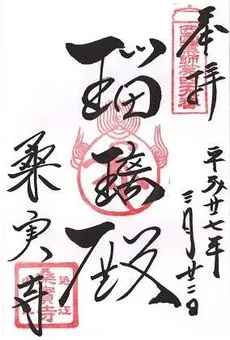 奉拝
平成廿七年
三月廿二日
瑠璃殿
桑實寺
近江
桑實寺